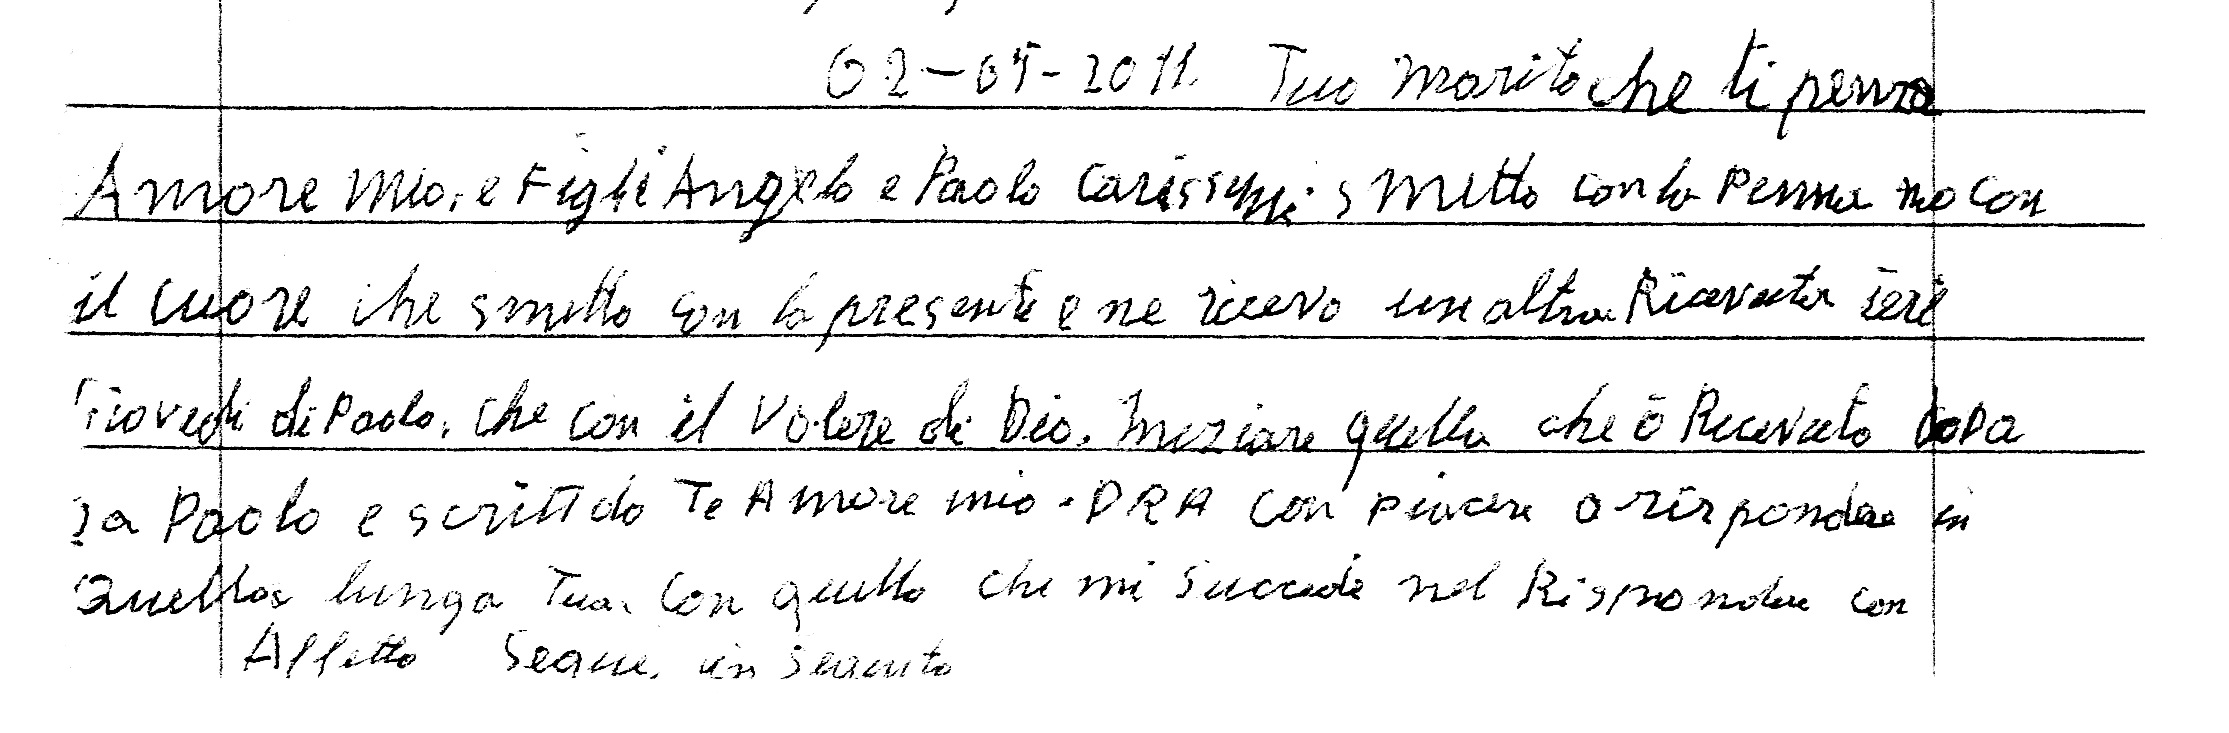 02-05-2011. Tuo marito che ti pensa
Amore Mio, e Figli Angelo e Paolo Carissimi. smetto con la Penna no con
il cuore che smetto con la presente e ne ricevo un altra Ricevuta ieri
Giovedi di Paolo, che con il Volere di Dio, Iniziare quella che ò Ricevuto
Paolo e scritto Te Amore mio. DRA con piacere a rispondere in
Quella lunga Tua, Con quello che mi succede nel Rispondere con
Affetto Segue, in Seguito